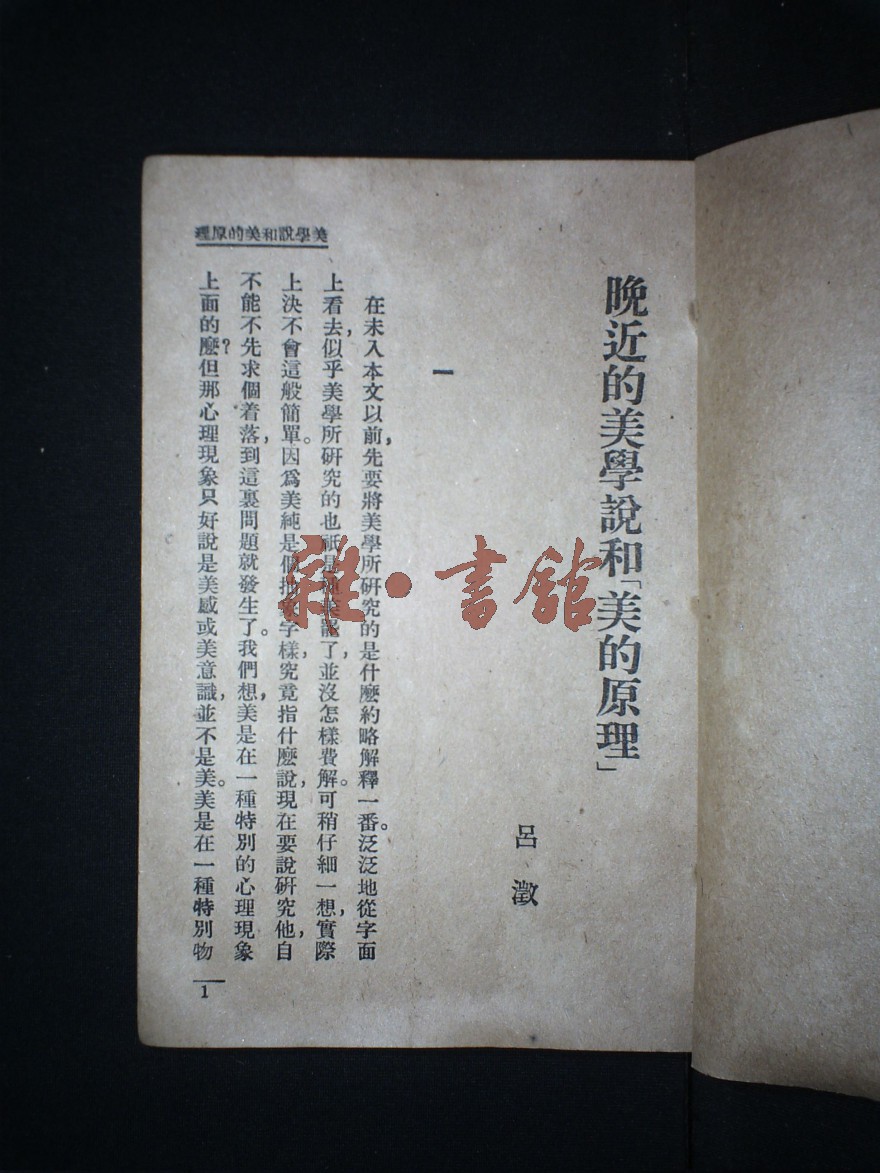 美學說和美的原理
晚近的美學說和「美的原理」
呂澂
一
在未入本文以前，先要將美學所研究的是什麼約略解釋一番。泛泛地從字面
上看去，似乎美學所研究的也祇是了，並沒怎樣費解。可稍仔細一想，實際
上決不會這般簡單。因爲美純是個抽象字樣，究竟指什麼說，現在要說研究他，自
不能不先求個着落，到這裏問題就發生了。我們想，美是在一種特別的心理現象
上面的麼？但那心理現象只好說是美感或美意識，並不是美。美是在一種特別物
1
雜·書館